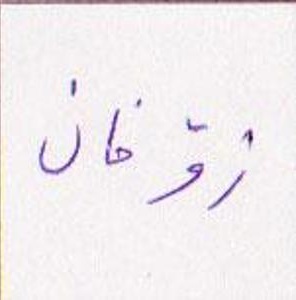 زوّخان